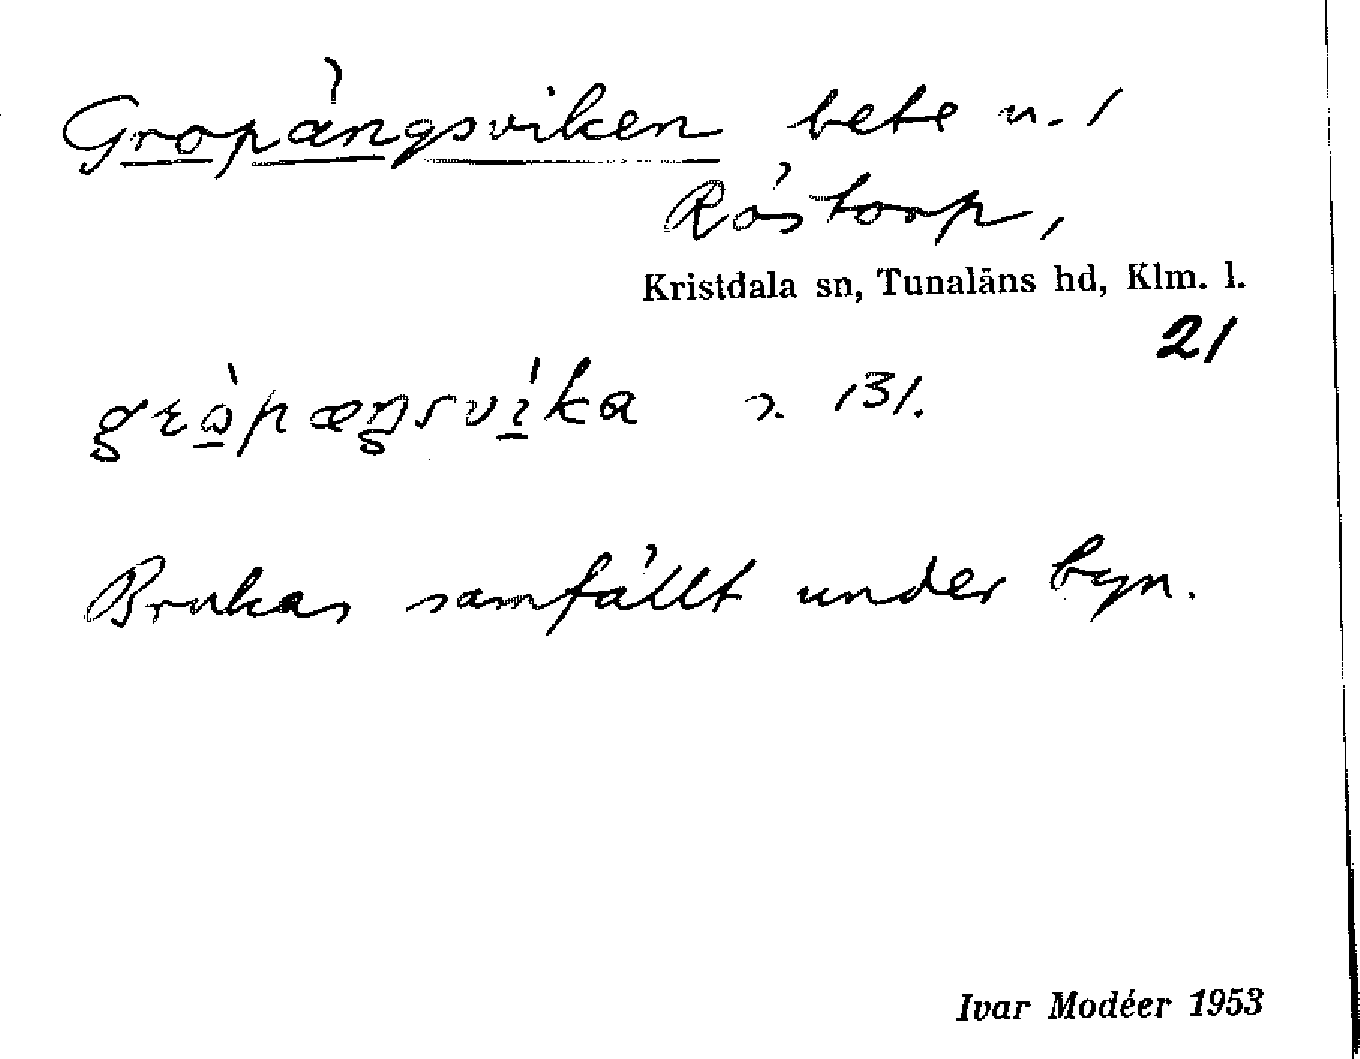 Gropängsviken bete u. 1
Röstorp,
Kristdala sn, Tunaläns hd, Klm. l.
21
131.
Brukas samfällt under byn.
Ivar Modéer 1953